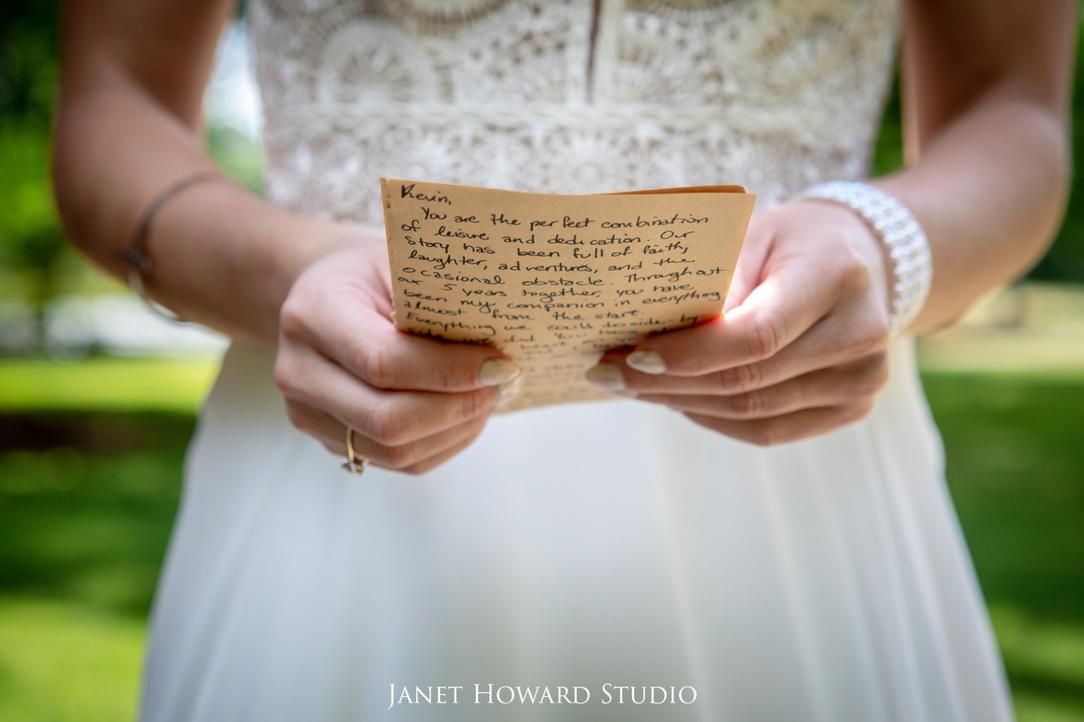 Kevin,
You are the perfect combination
of leisure and dedication. Our
story has been full of faith,
laughter, adventures, and the
ocasional obstacle. Throughout
our 5 years together, you have
been my companion in everything
almost from the start.
Everything we could do side by
did. You have
JANET HOWARD STUDIO